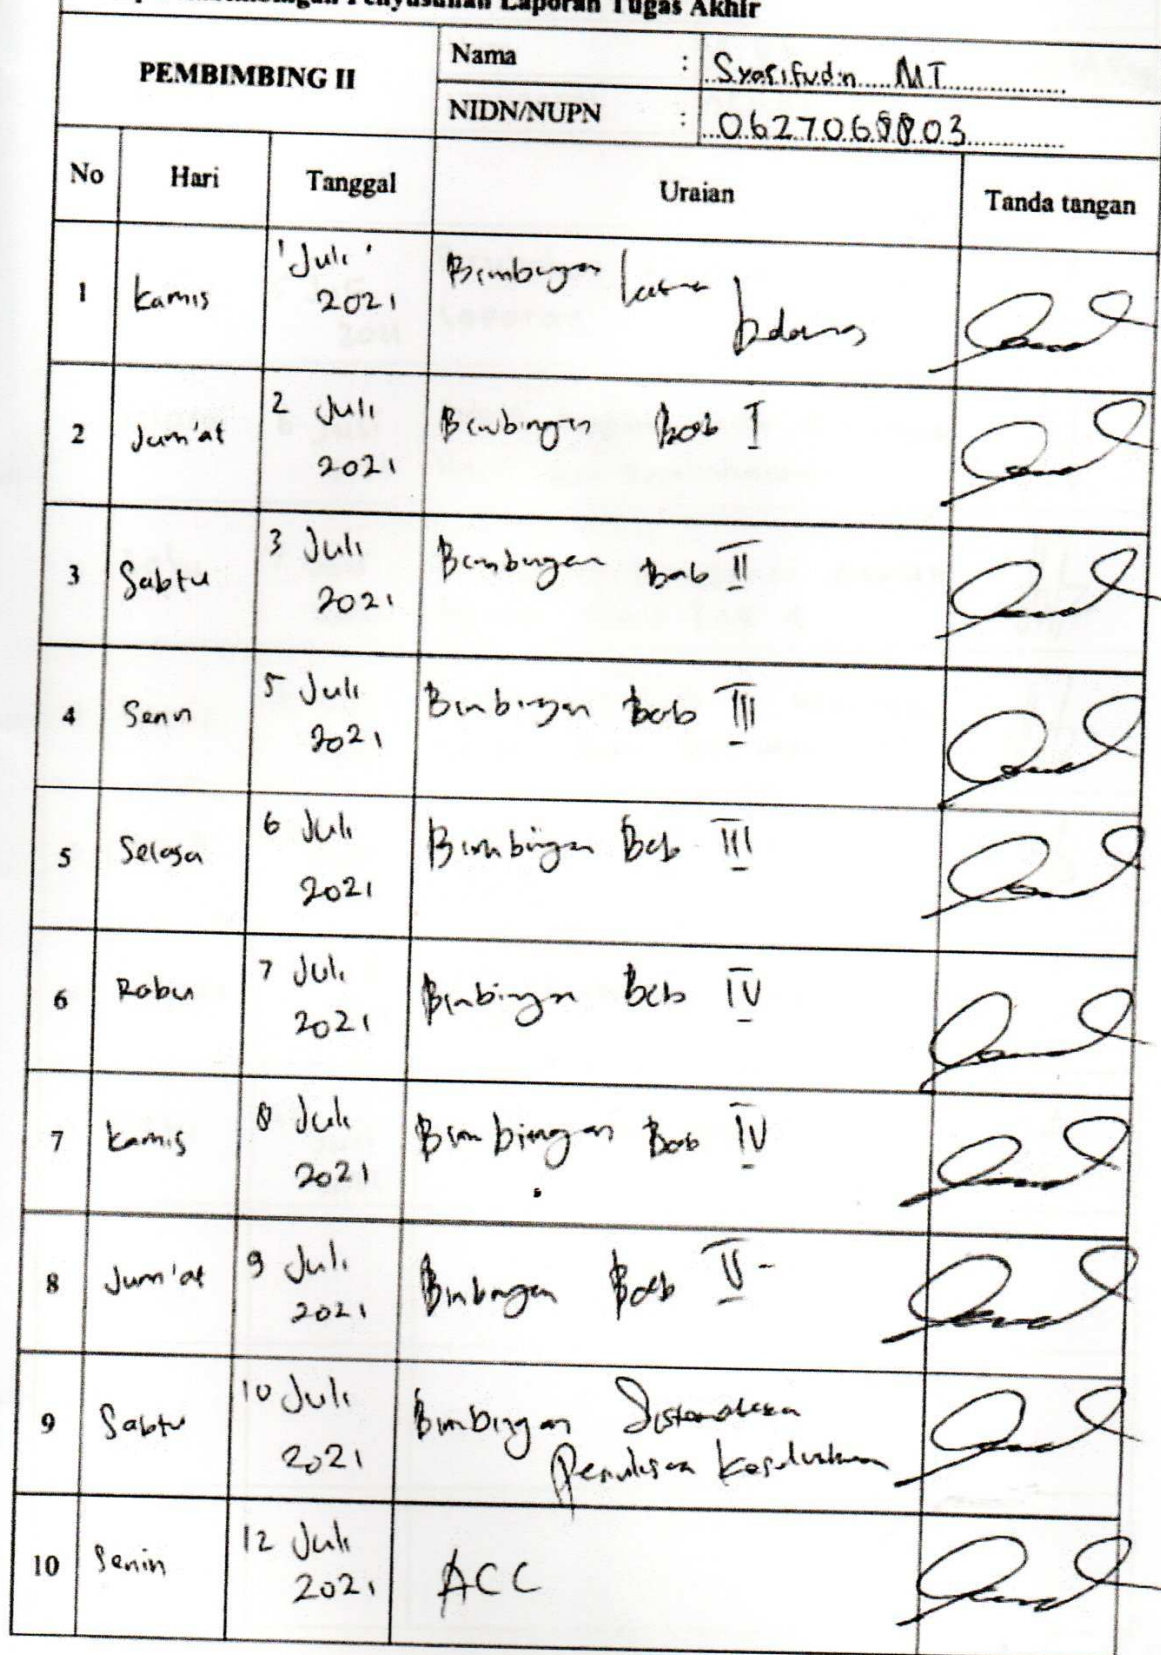 Penyusunan Laporan Tugas Akhir
PEMBIMBING II
Nama : Syarifudin MT
NIDN/NUPN : 0627068803
No Hari Tanggal Uraian Tanda tangan
1 Kamis 1 Juli 2021 Bimbingan latar belakang
2 Jum'at 2 Juli 2021 Bimbingan Bab I
3 Sabtu 3 Juli 2021 Bimbingan Bab II
4 Senin 5 Juli 2021 Bimbingan Bab III
5 Selasa 6 Juli 2021 Bimbingan Bab III
6 Rabu 7 Juli 2021 Bimbingan Bab IV
7 Kamis 8 Juli 2021 Bimbingan Bab IV
8 Jum'at 9 Juli 2021 Bimbingan Bab V
9 Sabtu 10 Juli 2021 Bimbingan Sistematika
Penulisan Keseluruhan
10 Senin 12 Juli 2021 ACC